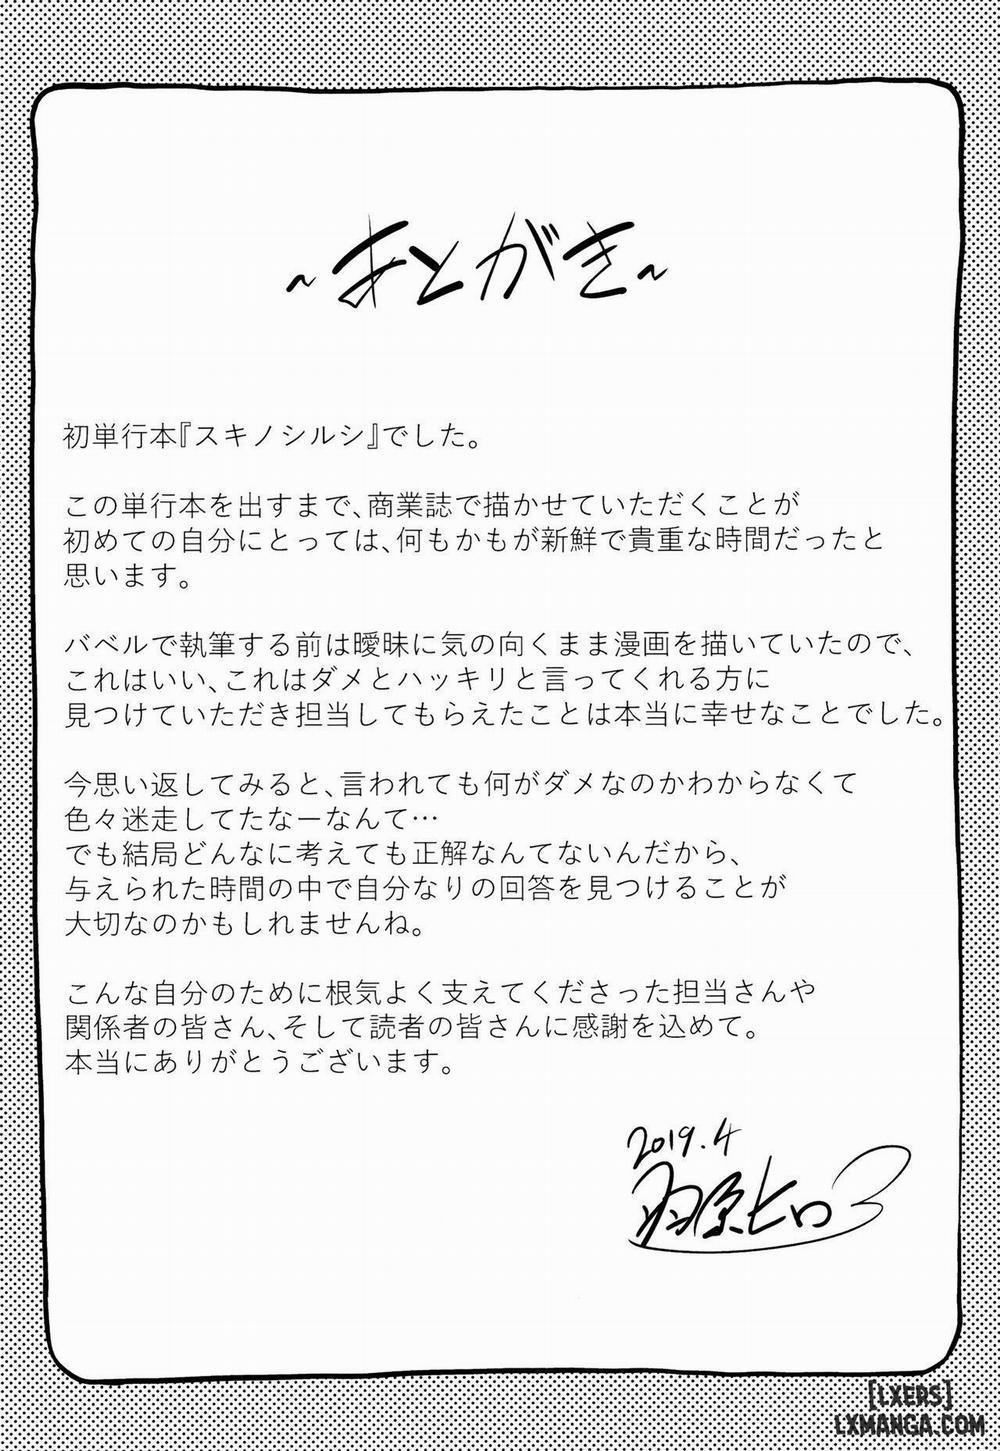 ~あとがき~
初単行本『スキノシルシ』でした。
この単行本を出すまで、商業誌で描かせていただくことが
初めての自分にとっては、何もかもが新鮮で貴重な時間だったと
思います。
バベルで執筆する前は曖昧に気の向くまま漫画を描いていたので、
これはいい、これはダメとハッキリと言ってくれる方に
見つけていただき担当してもらえたことは本当に幸せなことでした。
今思い返してみると、言われても何がダメなのかわからなくて
色々迷走してたなーなんて…
でも結局どんなに考えても正解なんてないんだから、
与えられた時間の中で自分なりの回答を見つけることが
大切なのかもしれませんね。
こんな自分のために根気よく支えてくださった担当さんや
関係者の皆さん、そして読者の皆さんに感謝を込めて。
本当にありがとうございます。
2019.4
羽原ヒロ
[LXERS]
LXMANGA.COM